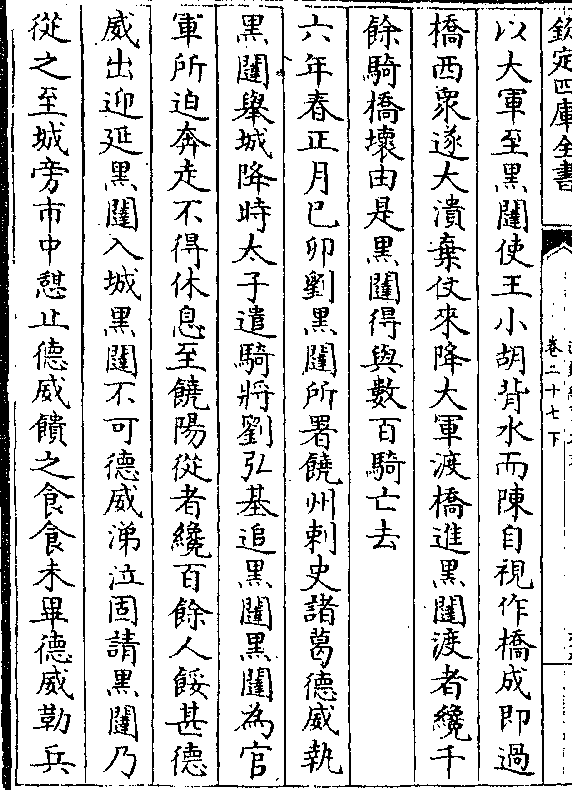 欽定四庫全書
卷二十七下
以大軍至黑闥使王小胡背水而陳自視作橋成即過
橋西衆遂大潰棄仗來降大軍渡橋進黑闥渡者纔千
餘騎橋壊由是黑闥得與數百騎亡去
六年春正月己卯劉黑闥所署饒州刺史諸葛德威執
黑闥舉城降時太子遣騎將劉弘基追黑闥黑闥為官
軍所迫奔走不得休息至饒陽從者纔百餘人餒甚德
威出迎延黑闥入城黑闥不可德威涕泣固請黑闥乃
從之至城旁市中憇止德威饋之食食未畢德威勒兵